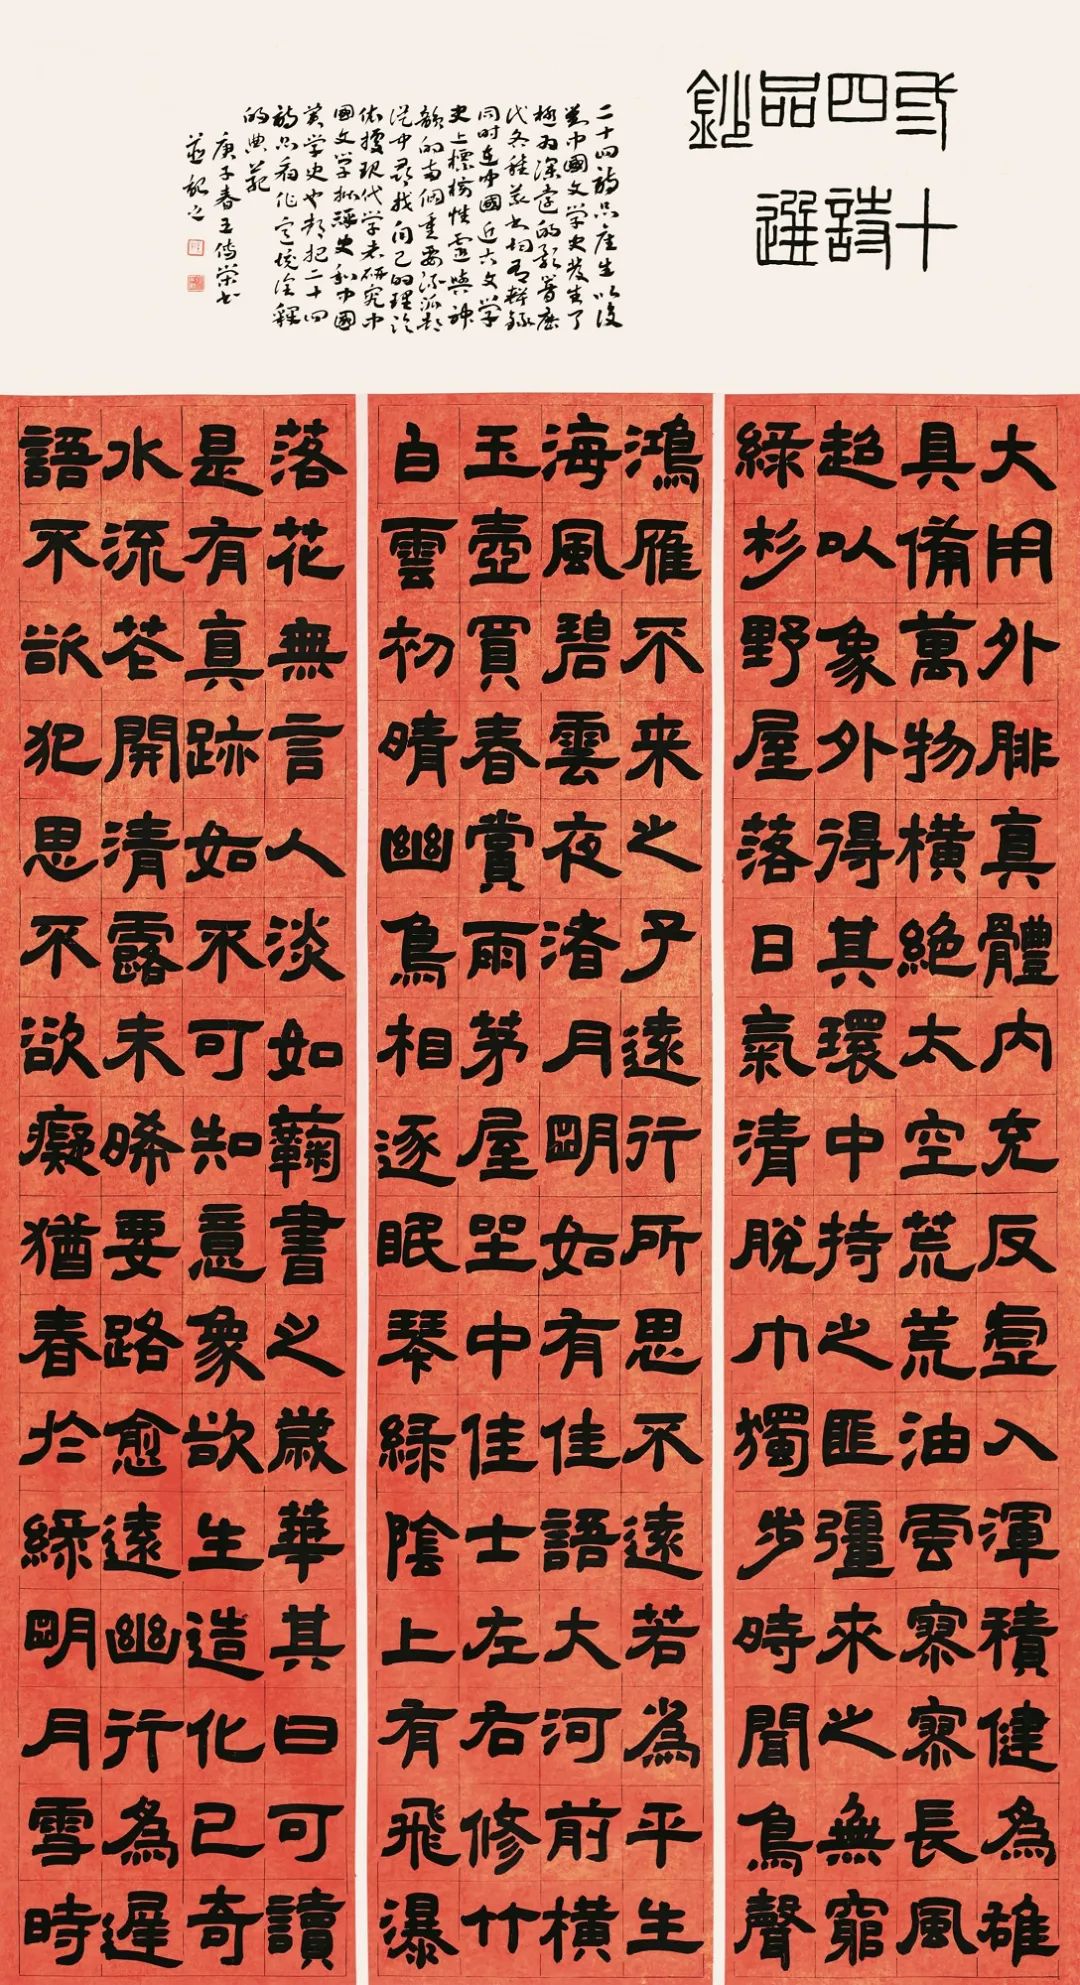 弍十
四詩
品選
鈔
二十四詩品産生以後
對中國文學史發生了
極为深遠的影響歷
代各種叢書均有輯録
同时在中國近古文學
史上標榜性靈與神
韻的兩個重要流派都
從中尋找自己的理论
依據現代學者研究中
國文學批評史和中國
美學史也都把二十四
詩品看作意境诠釋
的典範
庚子春王榮书
並記之
大用外腓真體内充反虛入渾積健為雄
具備萬物橫絶太空荒荒油雲寥寥長風
超以象外得其環中持之匪彊来之無窮
綠杉野屋落日氣清脫巾獨步時聞鳥聲
鴻雁不来之子遠行所思不遠若為平生
海風碧雲夜渚月明如有佳語大河前橫
玉壺買春賞雨茅屋坐中佳士左右修竹
白雲初晴幽鳥相逐眠琴綠陰上有飛瀑
落花無言人淡如鞠書之歲華其曰可讀
是有真跡如不可知意象欲生造化已奇
水流花開清露未晞要路愈遠幽行為遲
語不欲犯思不欲癡猶春於綠明月雪時